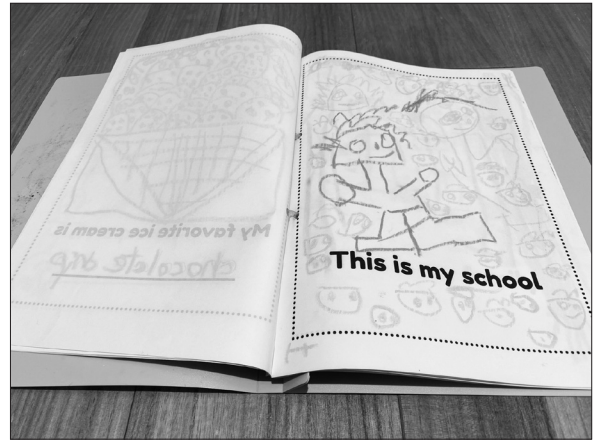 My favorite ice cream is
chocolate
This is my school